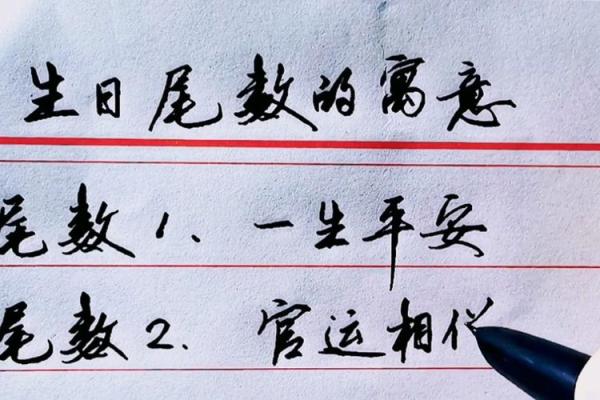 生日尾数的寓意
尾数1、一生平安
尾数2. 官运相